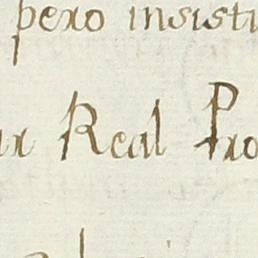 pero insisti
ar Real Pro